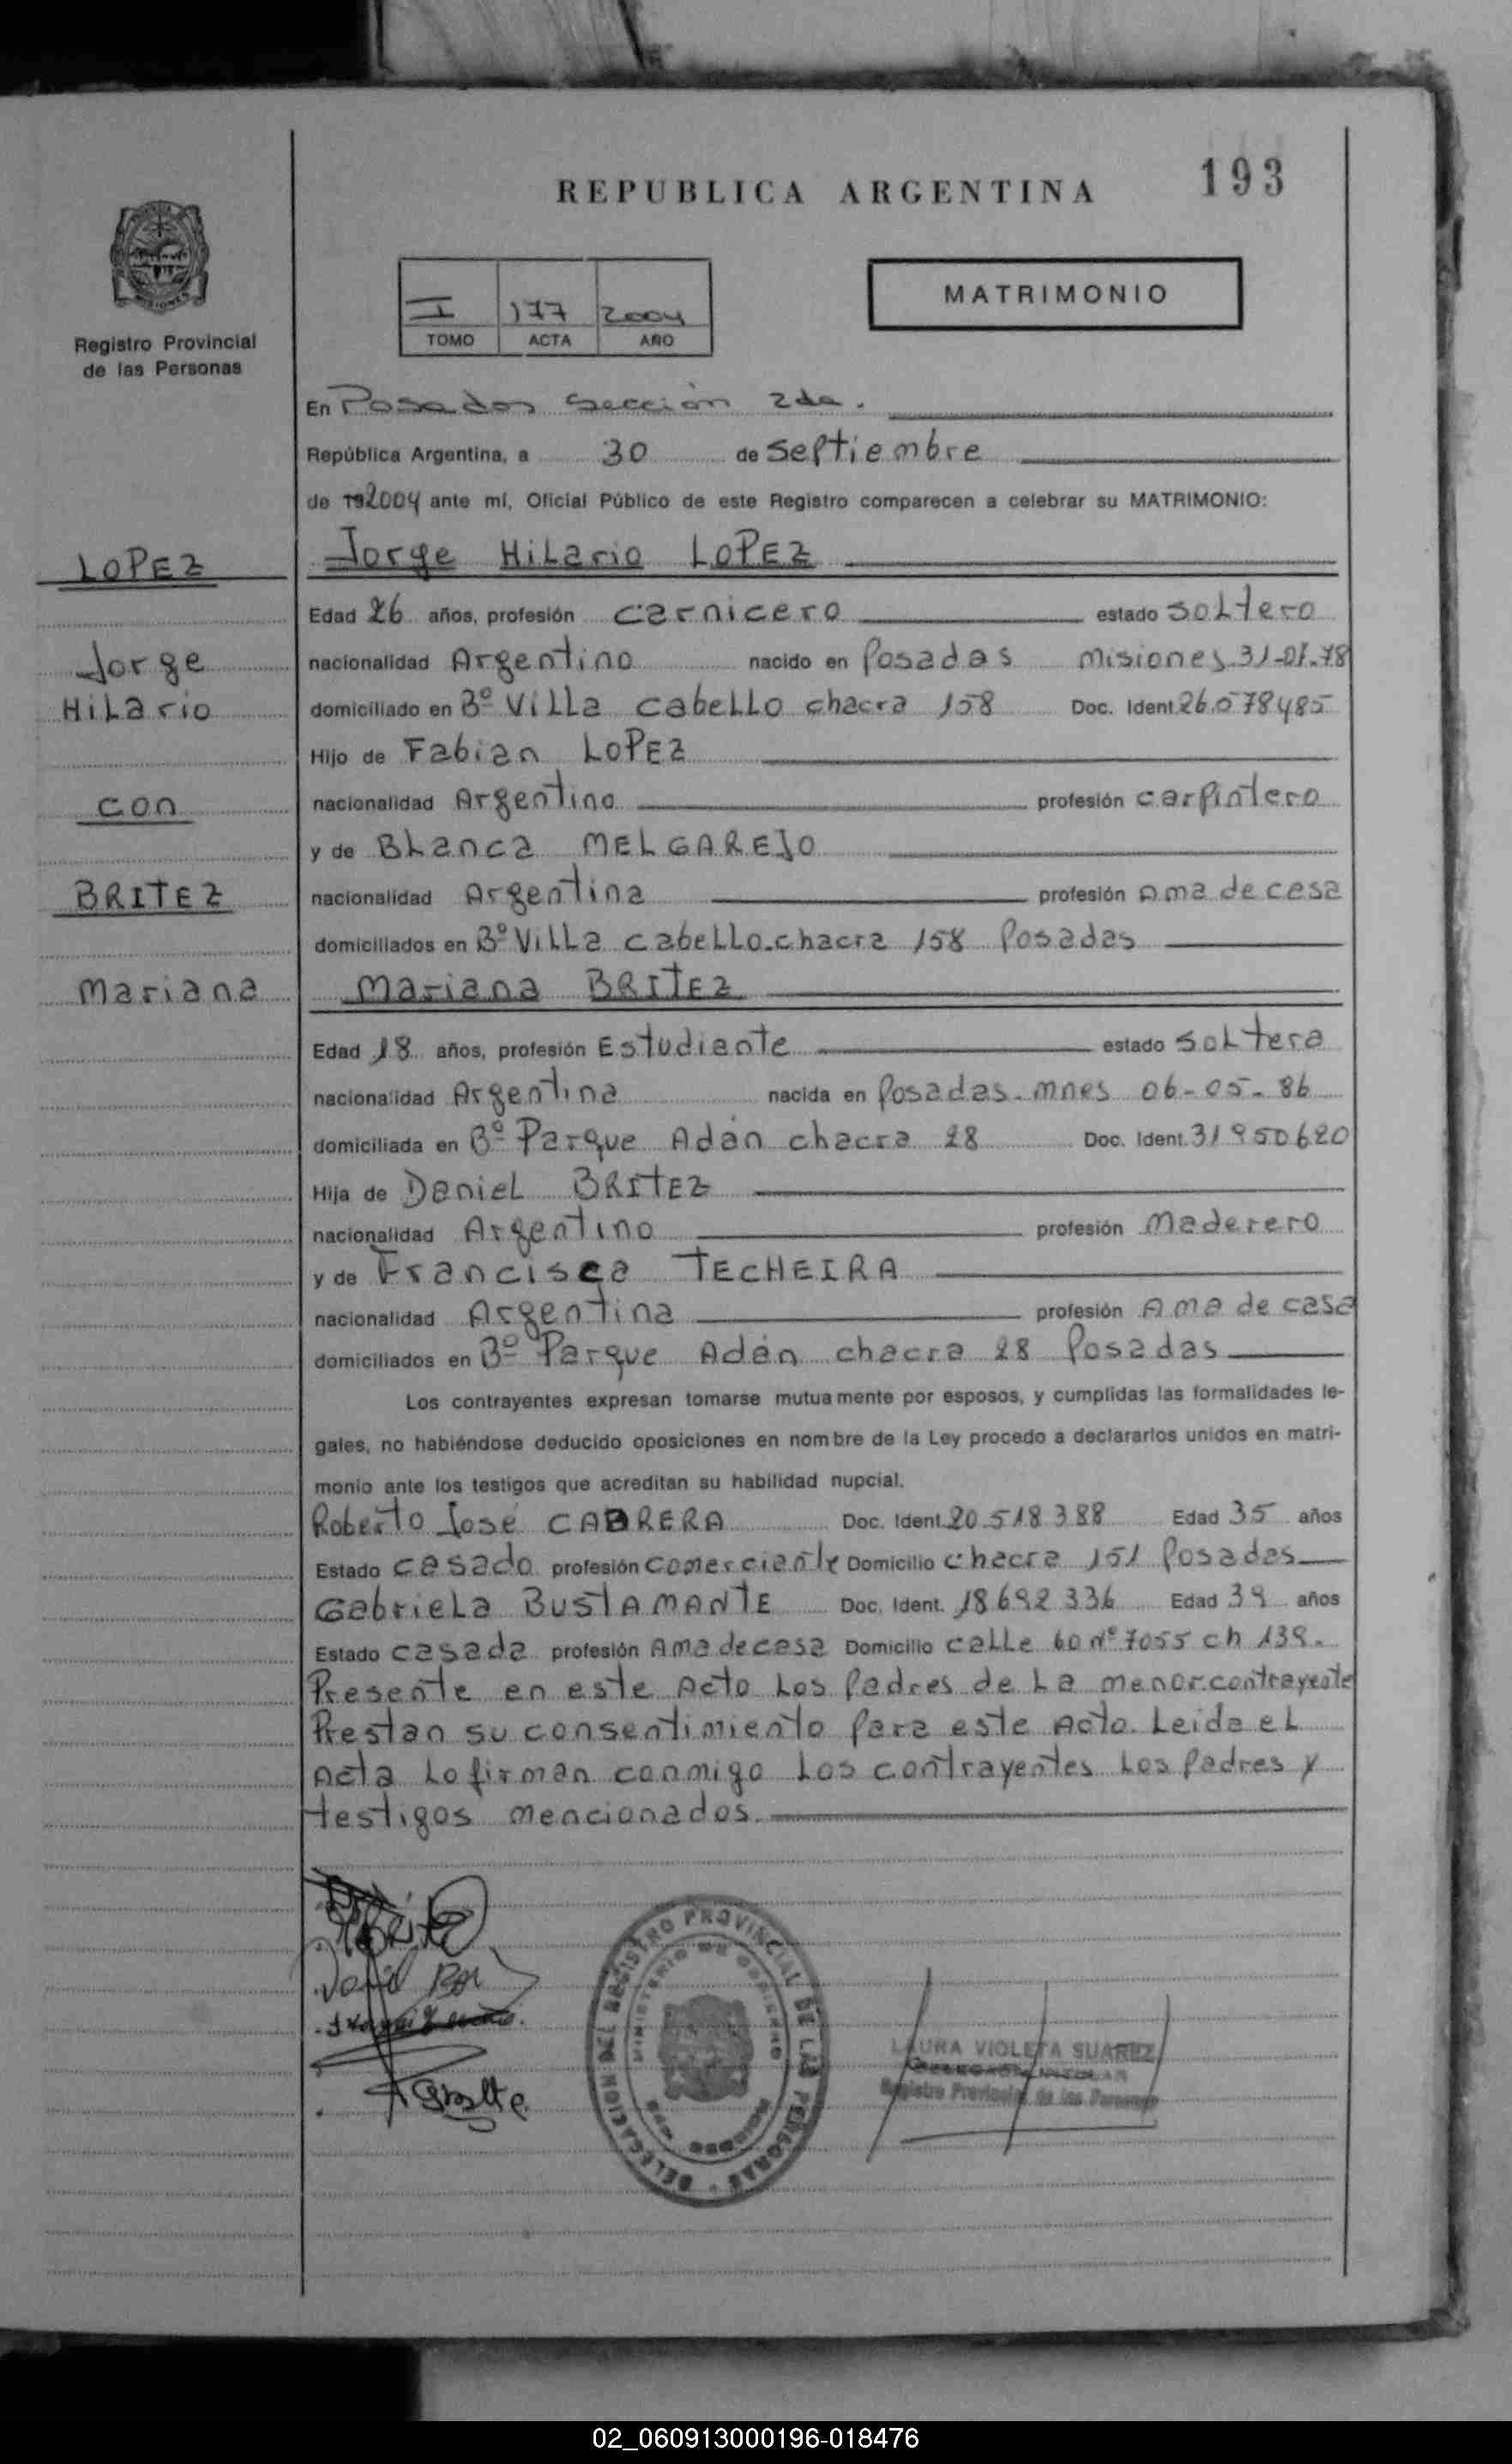 193
REPUBLICA ARGENTINA
MATRIMONIO
I 177 2004
TOMO ACTA AÑO
Registro Provincial
de las Personas
En Posadas Sección 2da.
República Argentina, a 30 de septiembre
de 192004 ante mí, Oficial Público de este Registro comparecen a celebrar su MATRIMONIO:
LOPEZ
Jorge Hilario LOPEZ
Edad 26 años, profesión carnicero estado soltero
Jorge
nacionalidad Argentino nacido en Posadas Misiones 31-01-78
Hilario
domiciliado en Bº Villa Cabello chacra 158 Doc. Ident. 26.578485
Hijo de Fabian LOPEZ
con
nacionalidad Argentino profesión carpintero
y de Blanca MELGAREJO
BRITEZ
nacionalidad Argentina profesión Ama de casa
domiciliados en Bº Villa cabello.chacra 158 Posadas
Mariana
Mariana BRITEZ
Edad 18 años, profesión Estudiante estado soltera
nacionalidad Argentina nacida en Posadas. mnes 06-05-86
domiciliada en Bº Parque Adán chacra 28 Doc. Ident. 31950620
Hija de Daniel BRITEZ
nacionalidad Argentino profesión Maderero
y de Francisca TECHEIRA
nacionalidad Argentina profesión Ama de casa
domiciliados en Bº Parque Adán chacra 28 Posadas
Los contrayentes expresan tomarse mutuamente por esposos, y cumplidas las formalidades le-
gales, no habiéndose deducido oposiciones en nombre de la Ley procedo a declararlos unidos en matri-
monio ante los testigos que acreditan su habilidad nupcial.
Roberto José CABRERA Doc. Ident. 20.518388 Edad 35 años
Estado casado profesión comerciante Domicilio chacra 151 Posadas
Gabriela BUSTAMANTE Doc. Ident. 18692336 Edad 39 años
Estado casada profesión Ama de casa Domicilio calle 60 nº 7055 ch 139.
Presente en este Acto los padres de la menor contrayente
Prestan su consentimiento para este Acto. Leida el
Acta lo firman conmigo los contrayentes los padres y
testigos mencionados.
DELEGACION DEL REGISTRO PROVINCIAL DE LAS PERSONAS
MINISTERIO DE GOBIERNO
LAURA VIOLETA SUAREZ
Registro Provincial de las Personas
02_060913000196-018476